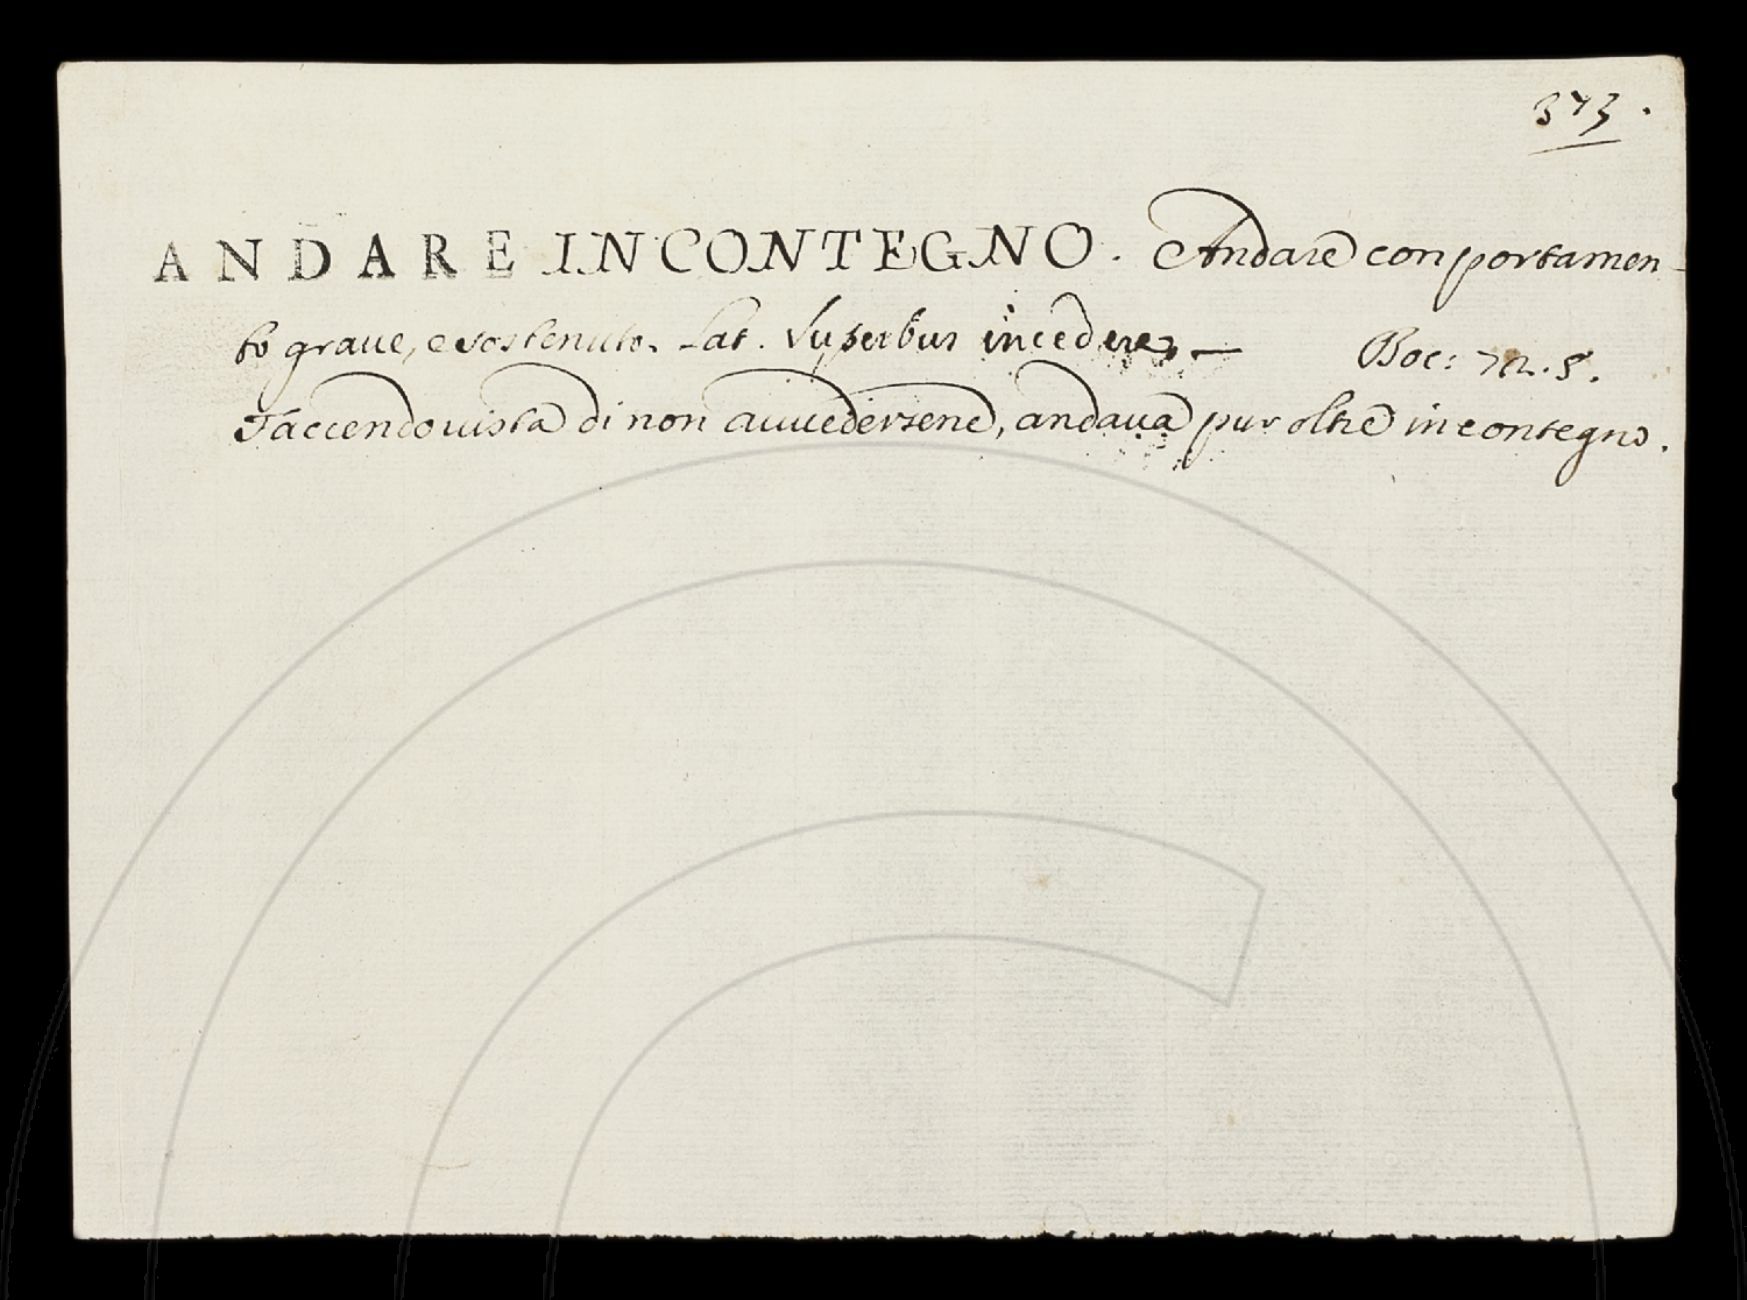 373.
ANDARE IN CONTEGNO. Andare con portamen-
to graue, e sostenuto. Lat. Superbus incedere. — Boc: 72.5.
Faccendo uista di non auuedersene, andaua pur oltre in contegno.